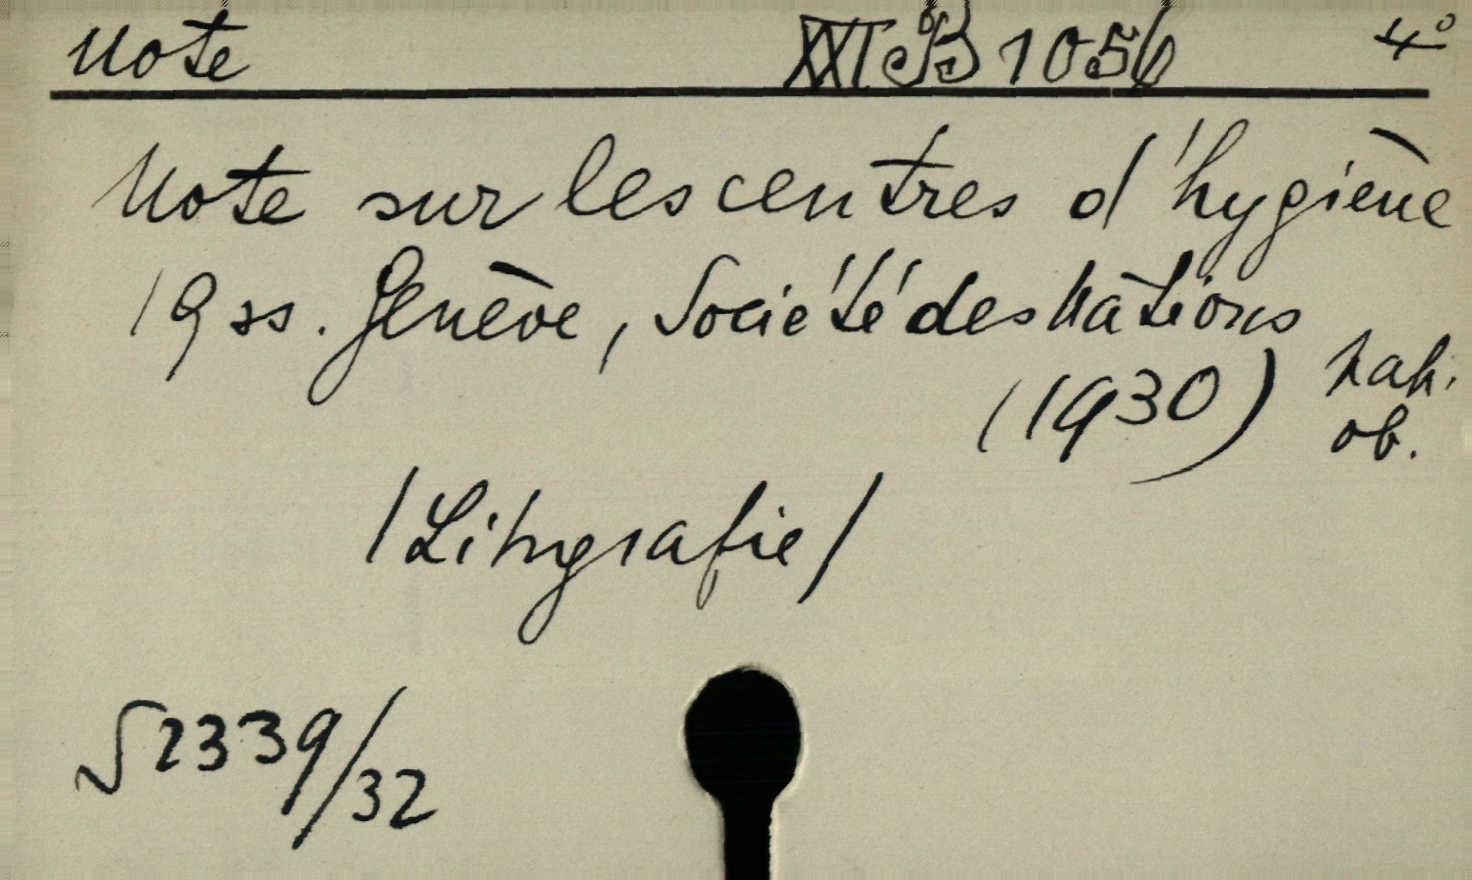 Note XXI B 1056 4°
Note sur les centres d'hygiène
19 ss. Genève, Société des Nations
(1930) nak.
ob.
/Litografie/
2339/32